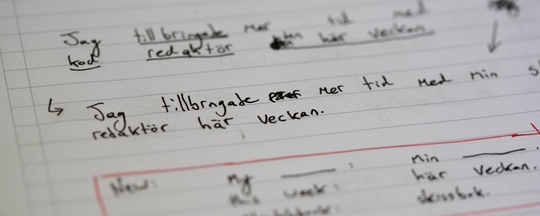 Jag tillbringade mer tid med
kod redaktör här veckan.
↳ Jag tillbrngade mer tid med min s
redaktör här veckan.
New: My ____ : min ____
this week: här veckan.
skissbok.